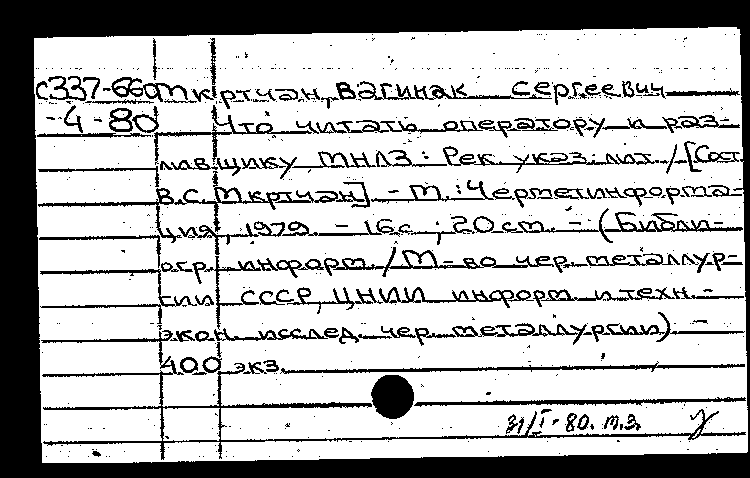 С337-660 Мкртчан, Вагинак Сергеевич
-4-80 Что читать оператору и раз-
ливщику МНЛЗ: Рек. указ. лит. / [Сост.
В.С. Мкртчан] - М.: Черметинформа-
ция, 1979. - 16с ; 20 см. - (Библи-
огр. информ. / М-во чер. металлур-
гии СССР, ЦНИИ информ. и техн.-
экон. исслед. чер. металлургии). -
400 экз.
31/I-80. т.з.